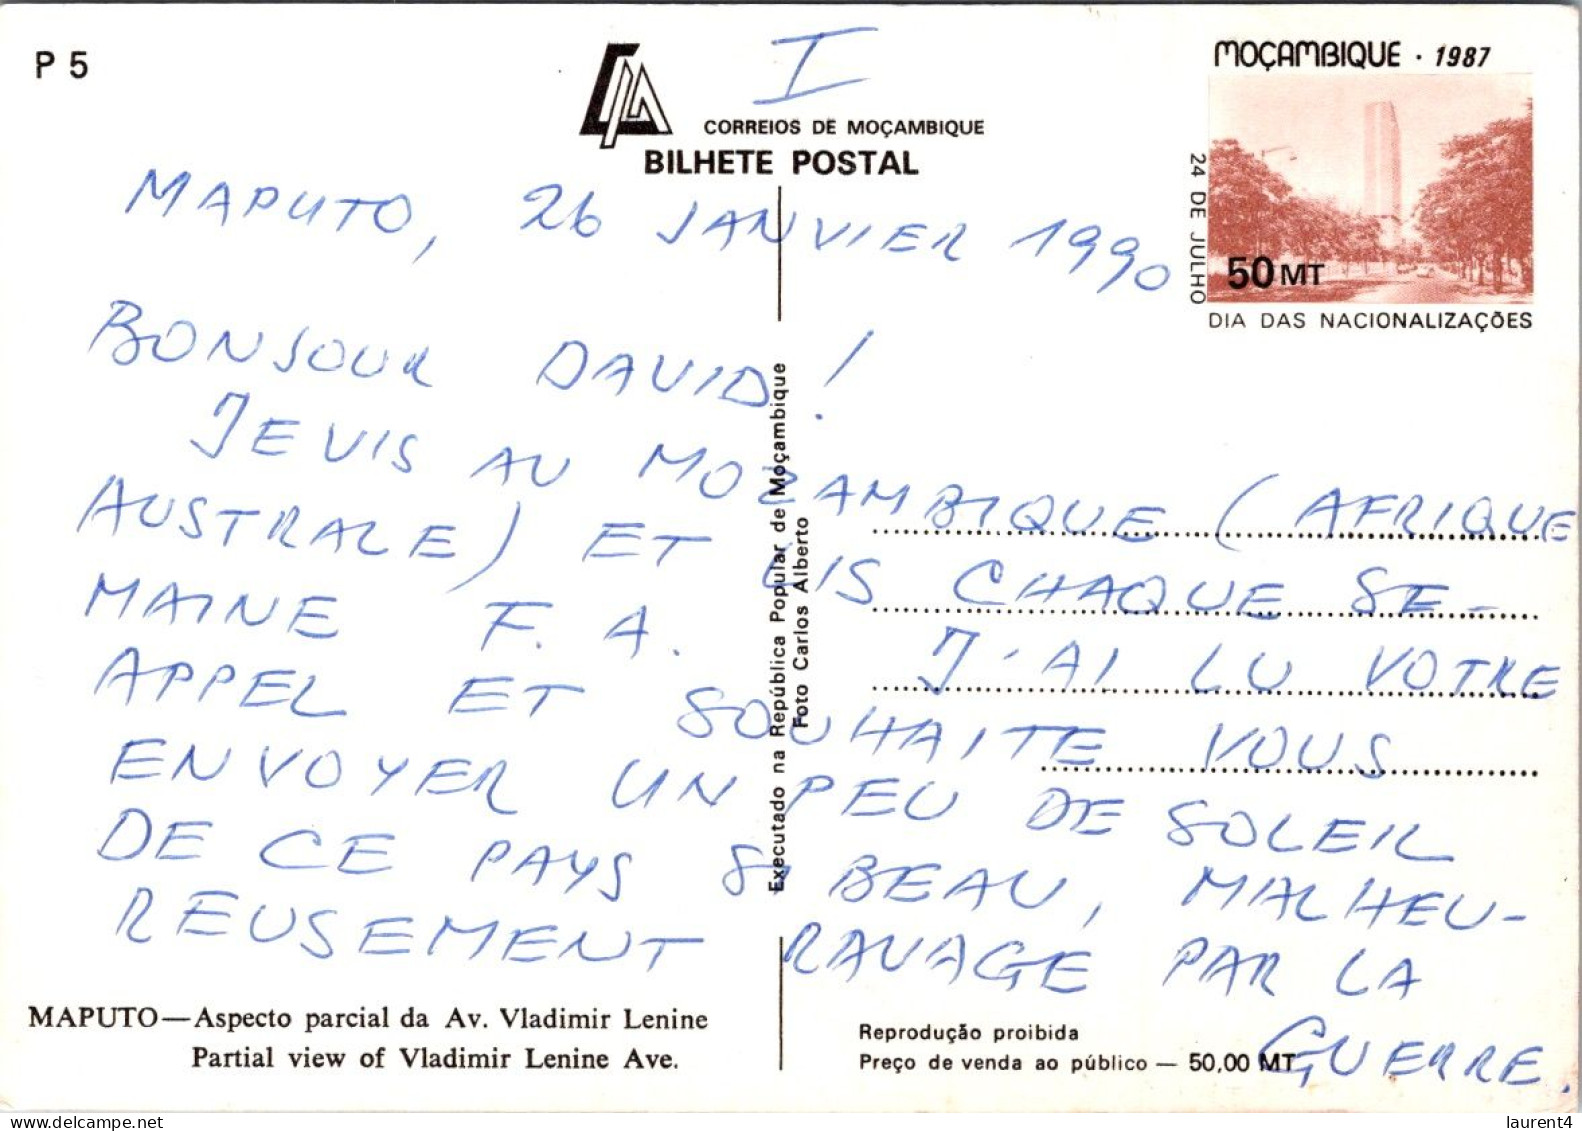 P 5
I
MOÇAMBIQUE · 1987
CORREIOS DE MOÇAMBIQUE
BILHETE POSTAL
24 DE JULHO
50 MT
DIA DAS NACIONALIZAÇÕES
MAPUTO, 26 JANVIER 1990
BONJOUR DAVID!
JE VIS AU MOZAMBIQUE (AFRIQUE
AUSTRALE) ET LIS CHAQUE SE-
MAINE F. A. J'AI LU VOTRE
APPEL ET SOUHAITE VOUS
ENVOYER UN PEU DE SOLEIL
DE CE PAYS SI BEAU, MALHEU-
REUSEMENT RAVAGE PAR LA
GUERRE.
Executado na República Popular de Moçambique
Foto Carlos Alberto
MAPUTO—Aspecto parcial da Av. Vladimir Lenine
Partial view of Vladimir Lenine Ave.
Reprodução proibida
Preço de venda ao público — 50,00 MT
laurent4